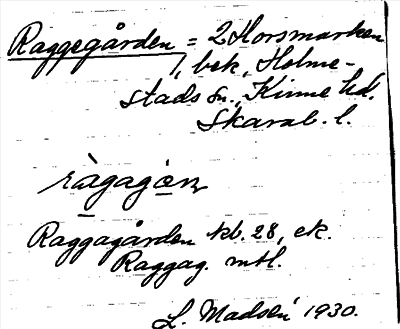 Raggegården = 2 Horsmarken
1, bek, Holme-
stads sn., Kinne hd.
Skarab. l.
ràgagɷn
Raggagården kb. 28, ek.
Raggag. mtl.
L. Madsén 1930.